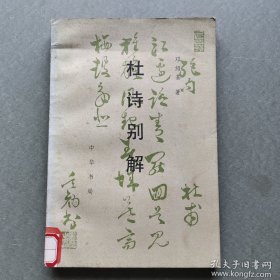 杜诗别解
邓绍基 著
中华书局
绝句
江边踏青罢回首见
旌旗风起春城暮高
楼鼓角悲
杜甫